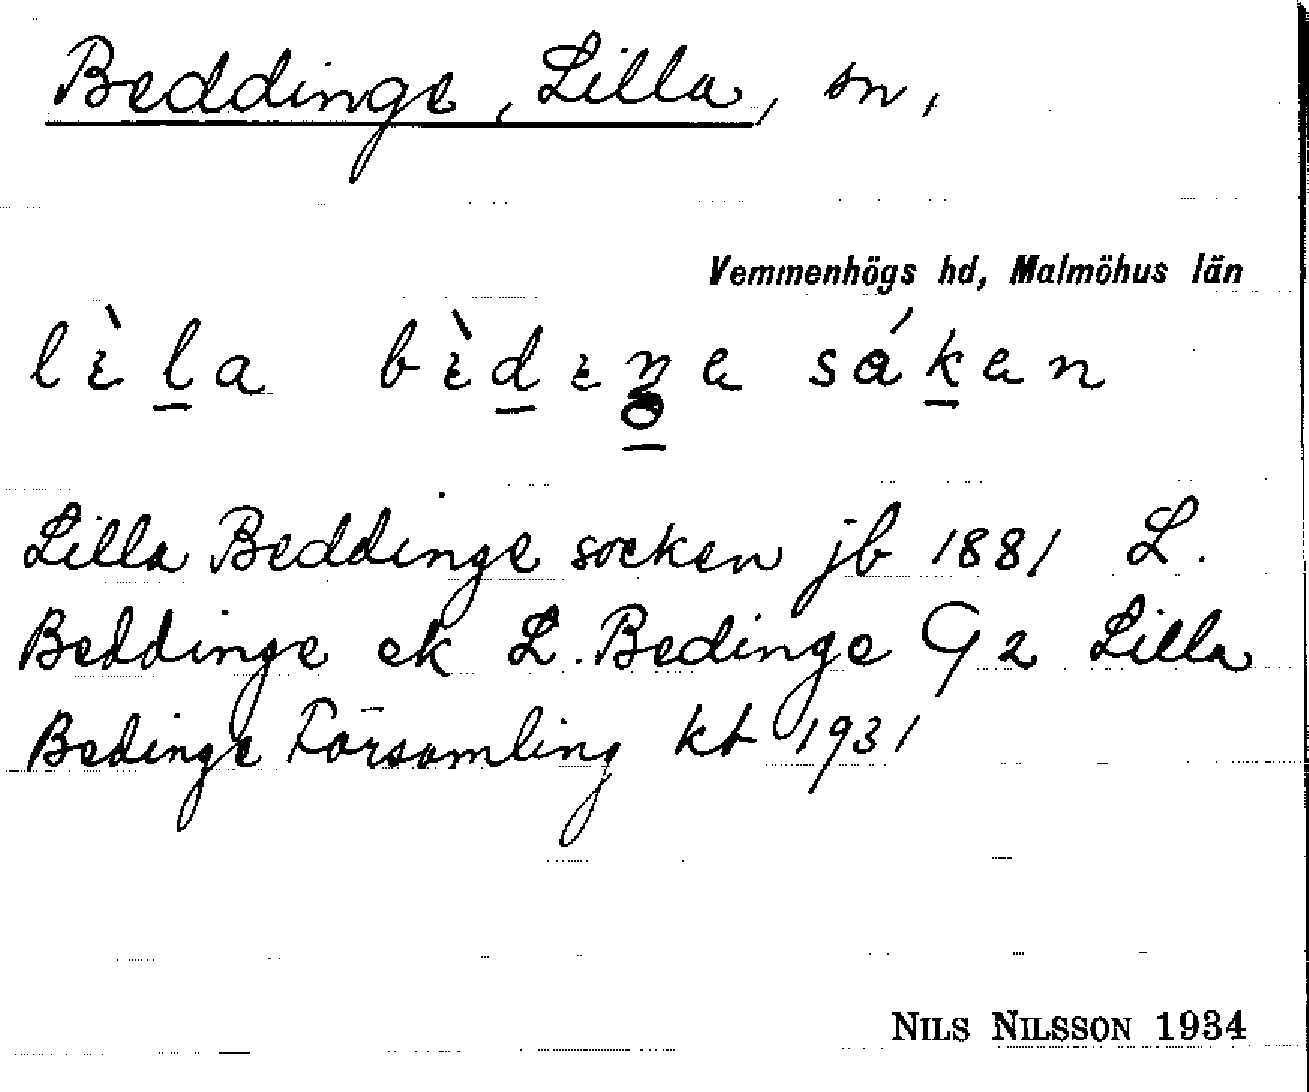 Beddinge, Lilla, sn,
Vemmenhögs hd, Malmöhus län
lɛ̀l̲a bɛ̀d̲ɛŋ̲e såk̲en
Lilla Beddinge socken jb 1881 L.
Beddinge ek L. Bedinge G 2 Lilla
Bedinge Församling kb 1931
NILS NILSSON 1934